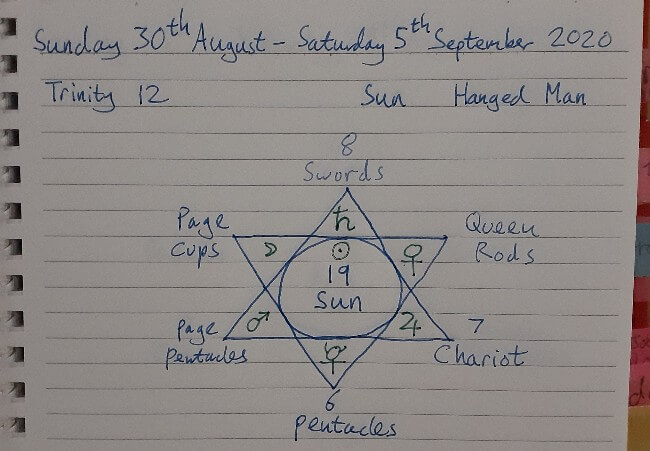 Sunday 30th August - Saturday 5th September 2020
Trinity 12 Sun Hanged Man
8
Swords
Page
Cups
Queen
Rods
♄
☽
☉
♀
19
Sun
Page
Pentacles
♂
♃
7
Chariot
☿
6
Pentacles